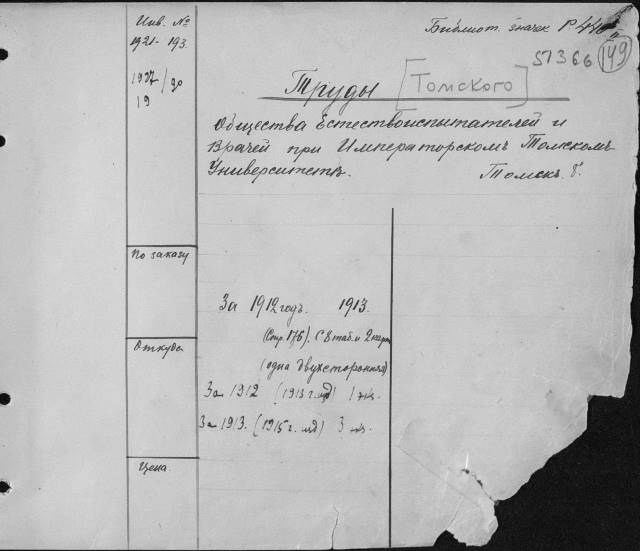 Инв. №
1921-193.
1927/90
19
Библиот. значек Р 446
51366 149
Труды [Томского]
Общества Естествоиспытателей и
Врачей при Императорскомъ Томскомъ
Университетѣ. Томскъ. 8°
По заказу
За 1912 годъ. 1913.
(Стр. 176). С 8 таб. и 2 карт
Откуда
(одна двухсторонняя)
За 1912 (1913 г. изд) 1 экз.
За 1913. (1915 г. изд) 3 экз.
Цена